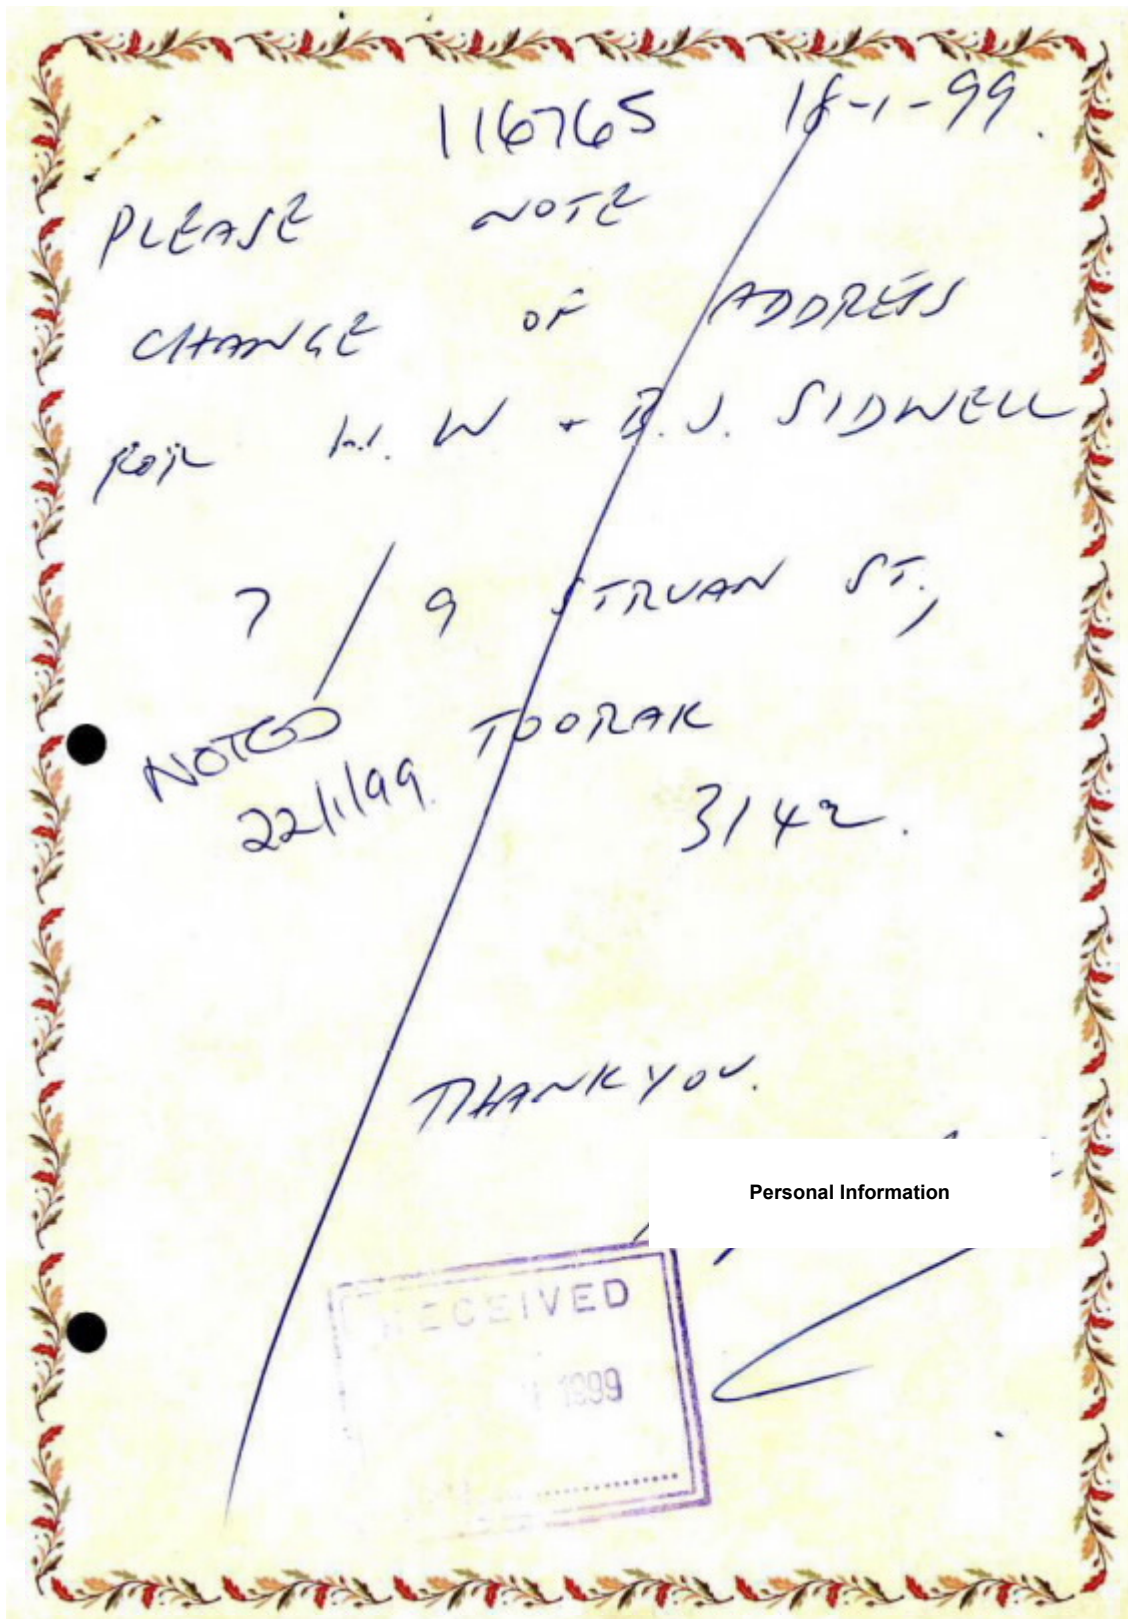 116765 18-1-99.
PLEASE NOTE
CHANGE OF ADDRESS
FOR W. W + B.J. SIDWELL
7/9 STRUAN ST.,
TOORAK
NOTED
22/1/99.
3142.
THANK YOU.
Personal Information
RECEIVED
1999